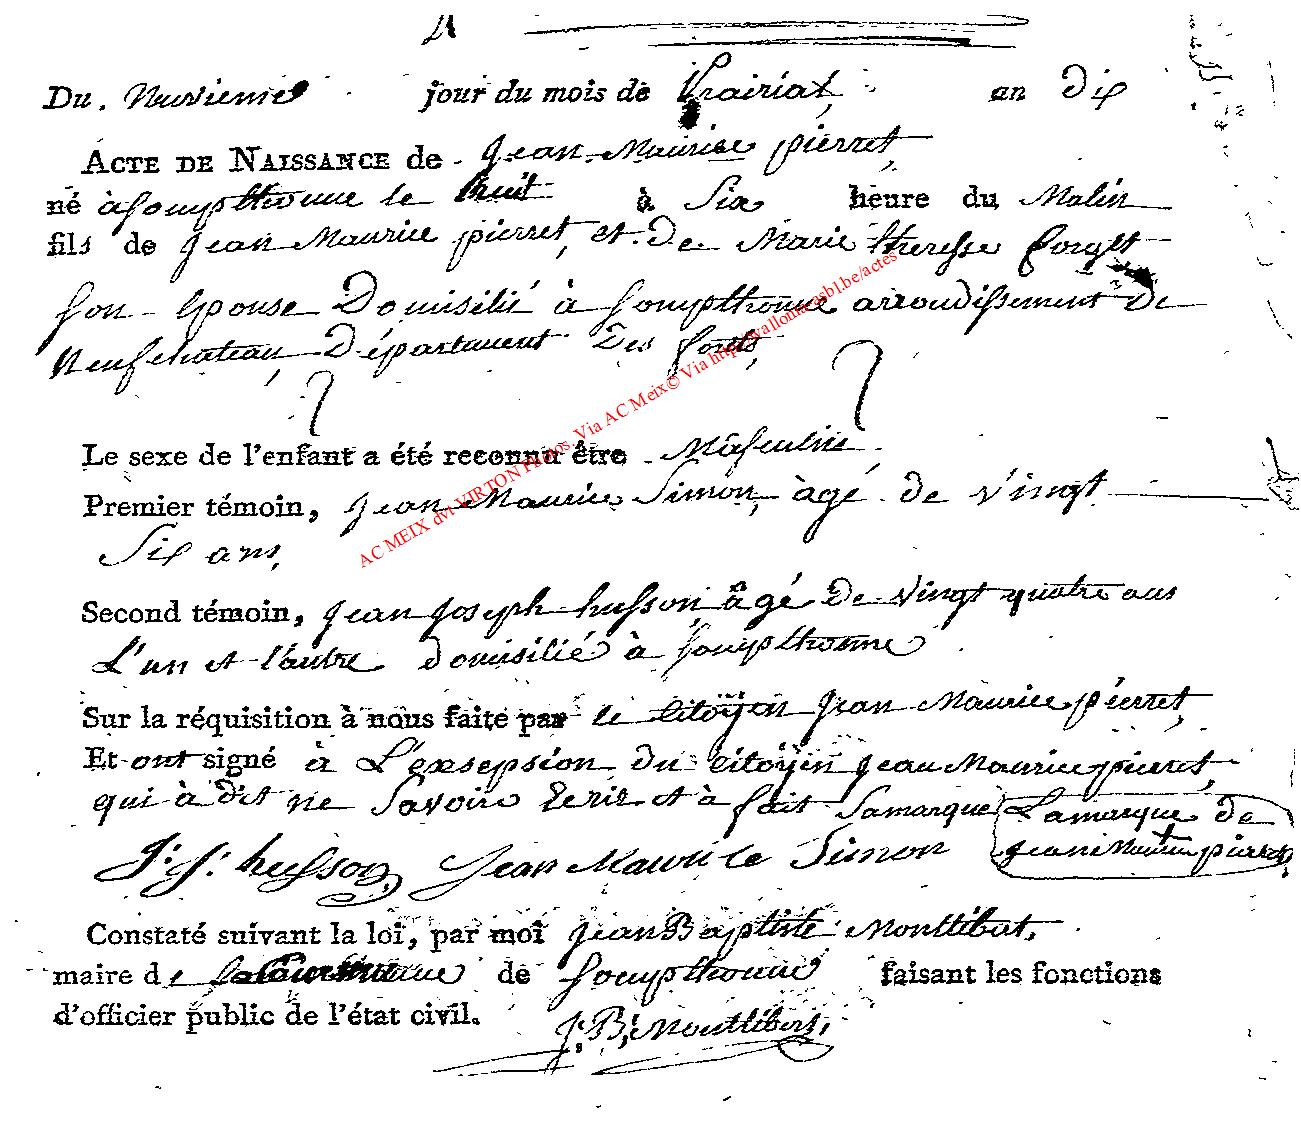 Du. Neuvieme jour du mois de Prairial, an Dix
ACTE DE NAISSANCE de Jean Maurice pierret,
né à Sompthonne le huit à Six heure du Matin
fils de Jean Maurice pierret, et De Marie theresse forget
Son Epouse Domisilié à Sompthonne arroudissement De
Neufchateau, Département Des forets,
Le sexe de l'enfant a été reconnu être Masculin
Premier témoin, Jean Maurice Simon, àgé de Vingt
Six ans,
Second témoin, Jean Joseph husson, âgé De Vingt quatre ans
L'un et l'autre domisilié à Sompthonne
Sur la réquisition à nous faite par le Citoÿen Jean Maurice piérret,
Et ont signé à L'exsepsion du Citoÿen Jean Maurice pierret,
qui à dit ne Savoire Ecrir et à fait Samarque Lamarque de
J: J: husson Jean Maurice Simon Jean Maurice + pierret
Constaté suivant la loi, par moi Jean Baptiste Montlibert,
maire de la Commune de Sompthonne faisant les fonctions
d'officier public de l'état civil. J: B: Montlibert,
AC MEIX dvt VIRTON Photos, Via AC Meix© Via http://wallonia.asbl.be/actes